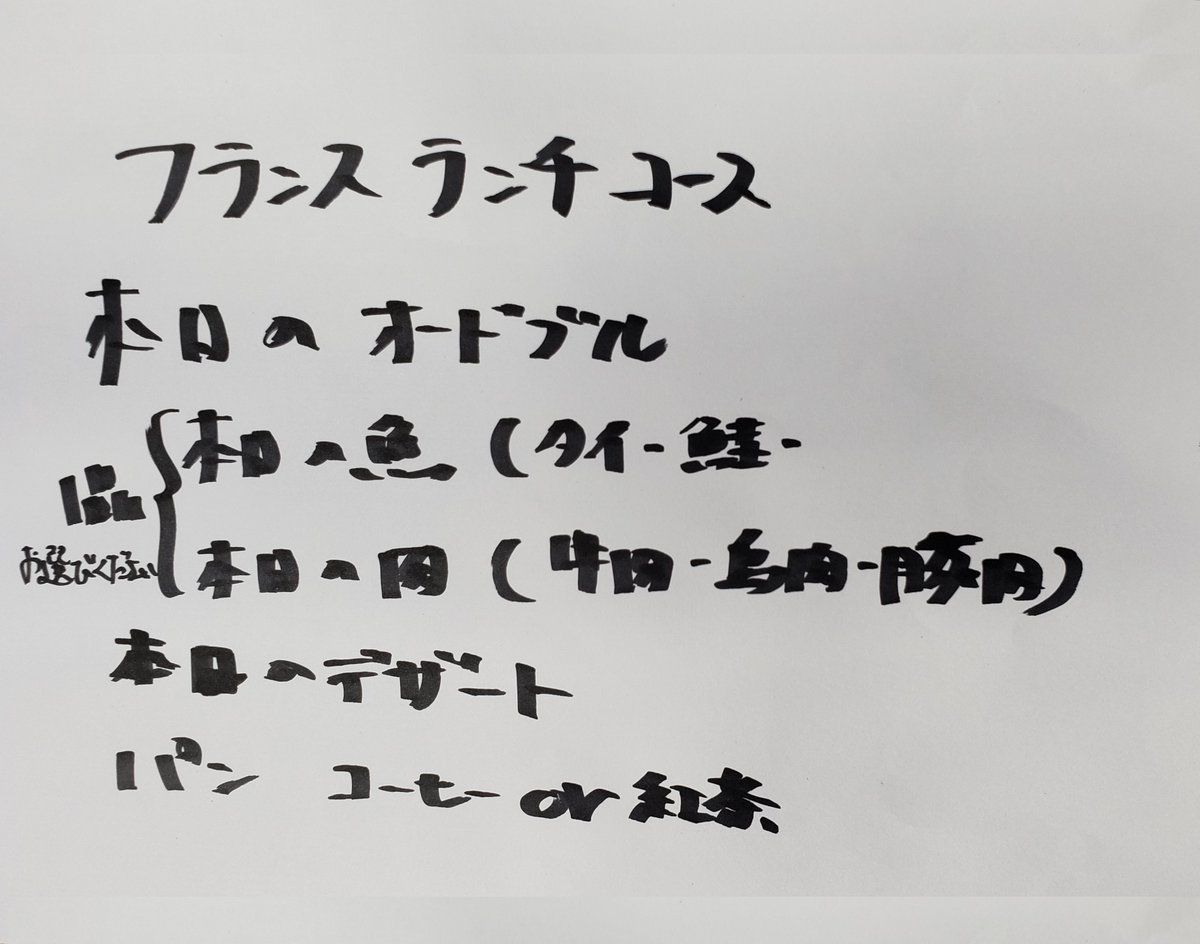 フランス ランチ コース
本日の オードブル
本日の魚 (タイ・鮭・
1品
お選びください
本日の肉 (牛肉・鳥肉・豚肉)
本日のデザート
パン コーヒー or 紅茶